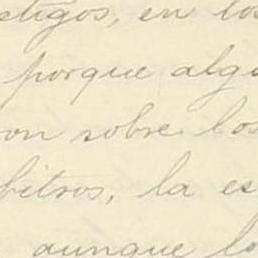 stigos, en los
porque algu
on sobre los
bitros, la es
aunque lo